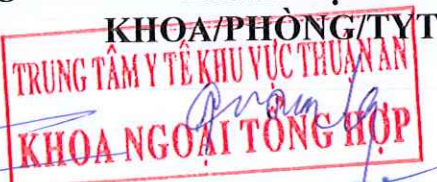 KHOA/PHÒNG/TYT
TRUNG TÂM Y TẾ KHU VỰC THUẬN AN
KHOA NGOẠI TỔNG HỢP